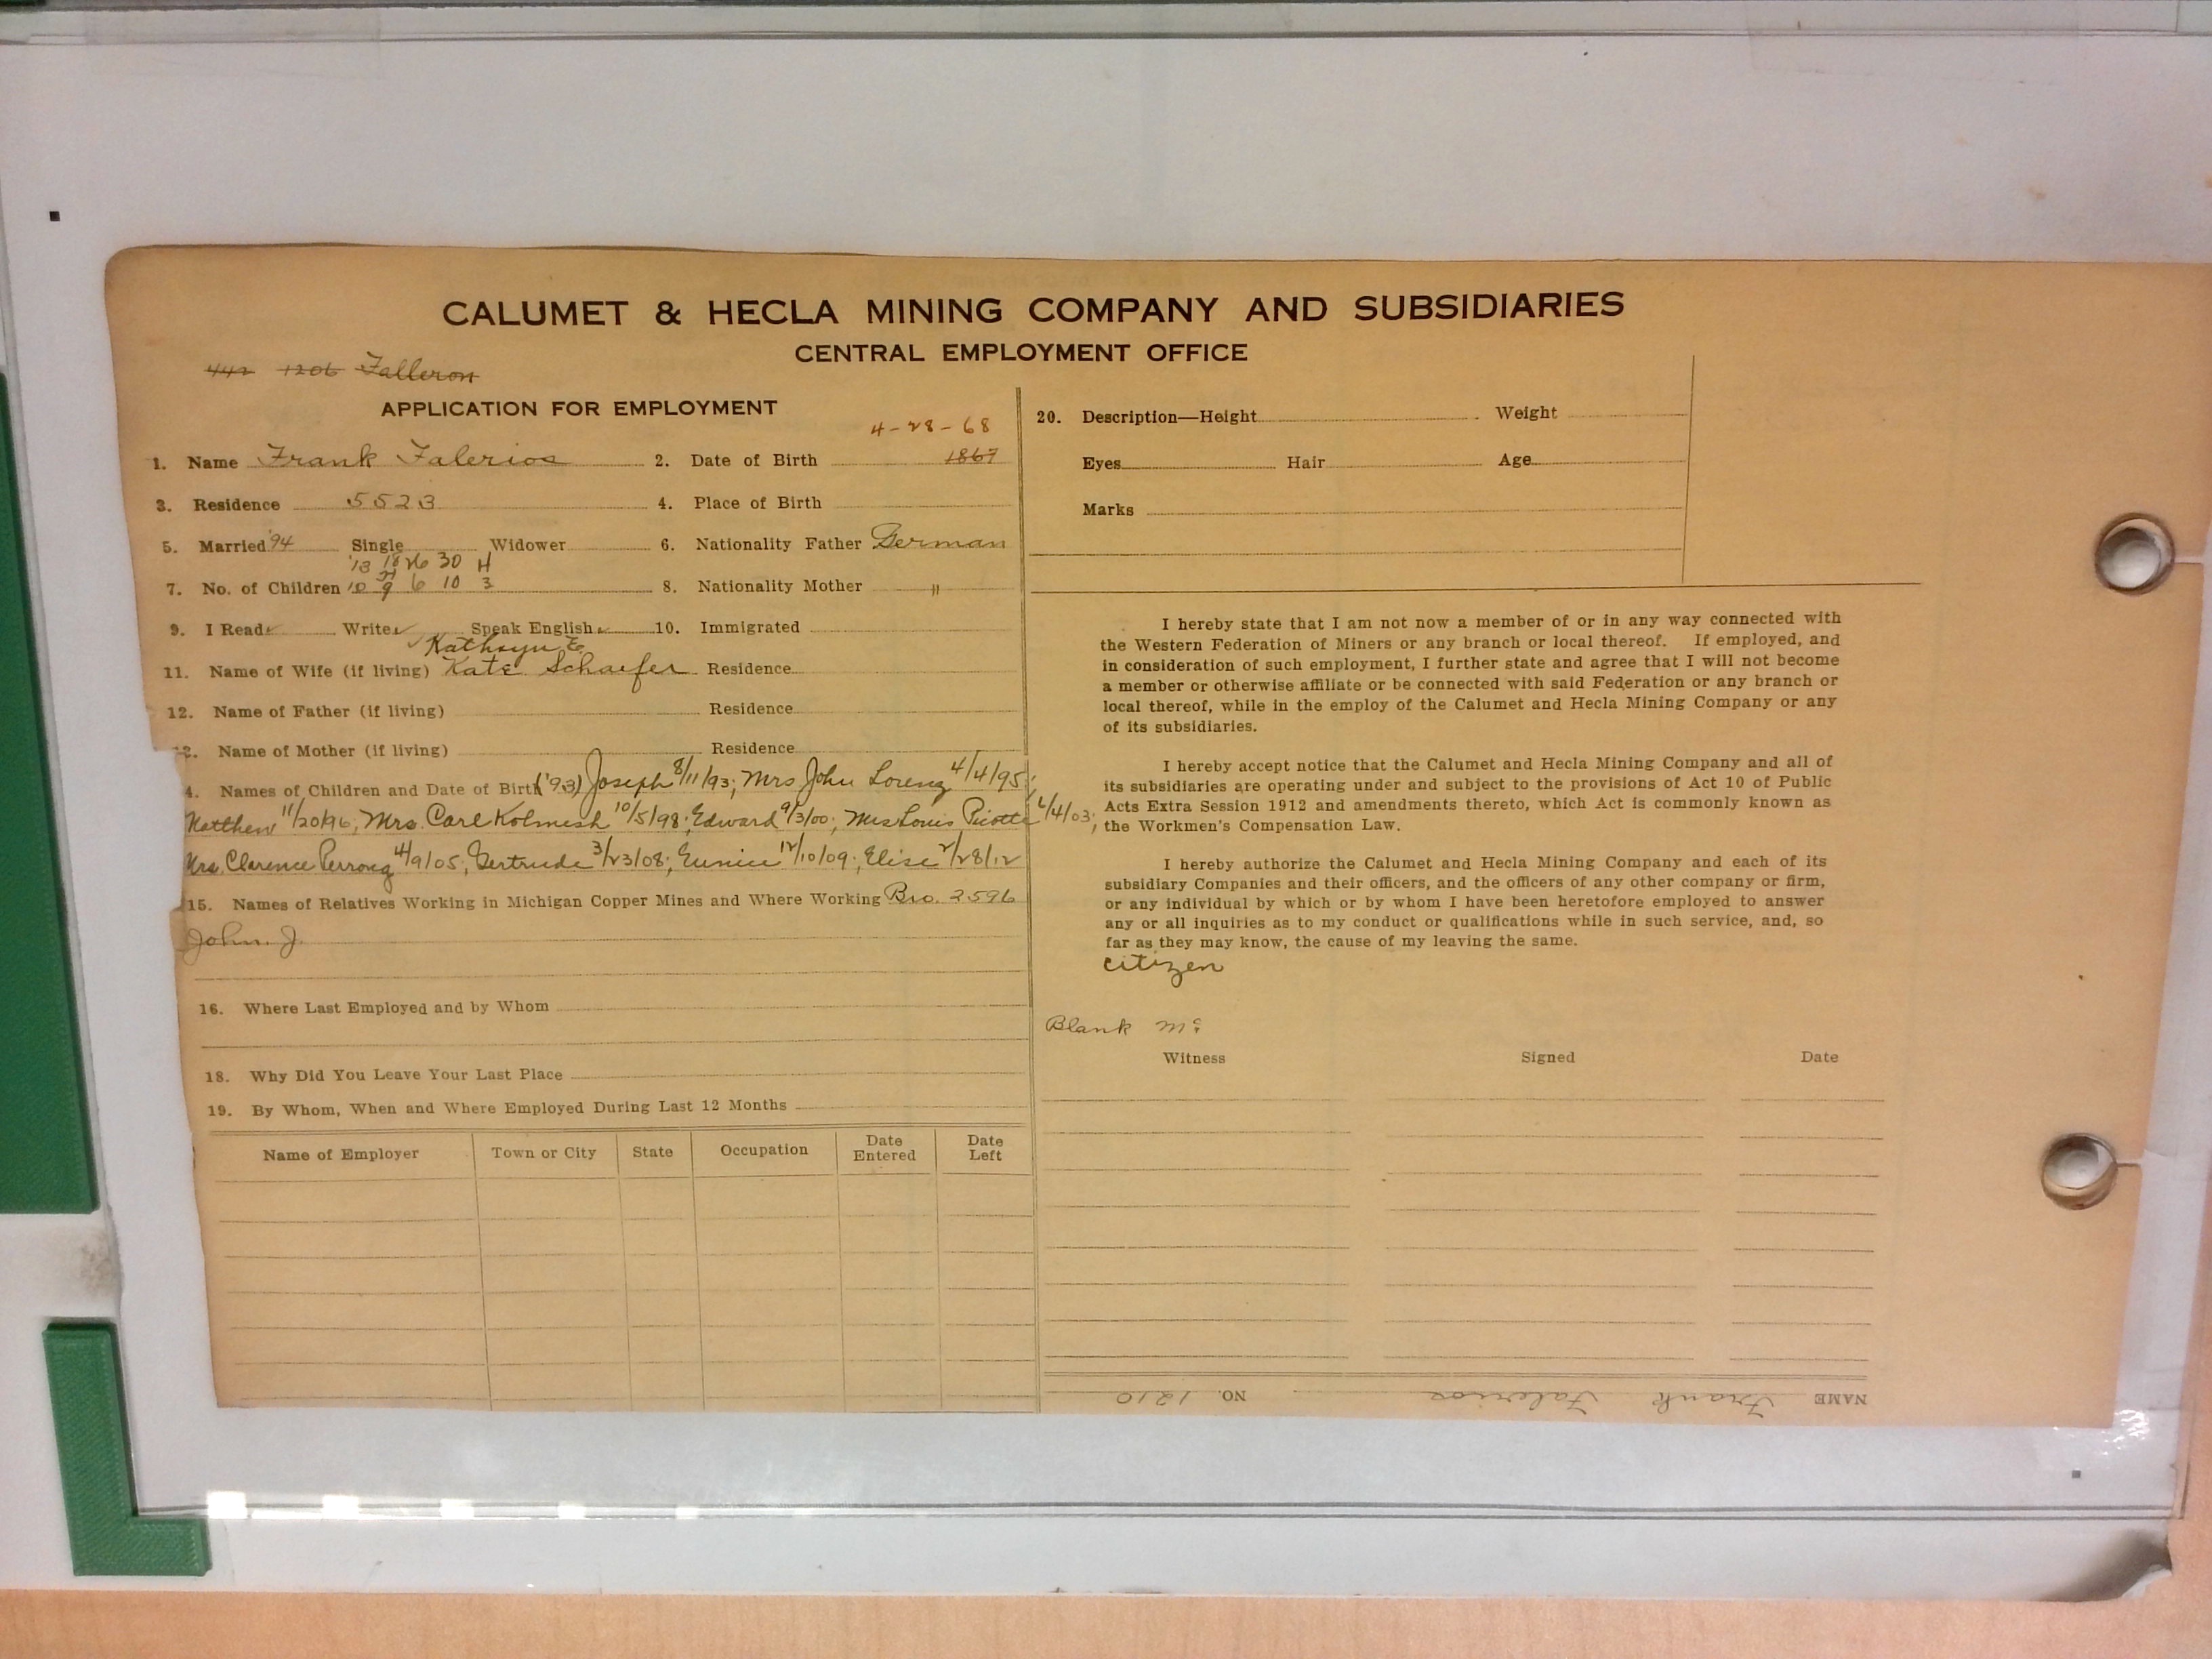 CALUMET & HECLA MINING COMPANY AND SUBSIDIARIES
CENTRAL EMPLOYMENT OFFICE
442 1206 Falleron
APPLICATION FOR EMPLOYMENT
4-28-68
1. Name Frank Falerios 2. Date of Birth 1867
3. Residence 5523 4. Place of Birth
5. Married '94 Single Widower 6. Nationality Father German
'13 18 26 30 H
7. No. of Children 10 9 6 10 3 8. Nationality Mother "
9. I Read ✓ Write ✓ Speak English ✓ 10. Immigrated
Kathryn E.
11. Name of Wife (if living) Kate Schaefer Residence
12. Name of Father (if living) Residence
12. Name of Mother (if living) Residence
4. Names of Children and Date of Birth ('93) Joseph 8/11/93; Mrs John Lorenz 4/4/95;
Matthew 11/20/96; Mrs. Carl Kolmesh 10/5/98; Edward 9/3/00; Mrs Louis Picotte 6/4/03;
Mrs. Clarence 4/9/05; Gertrude 3/23/08; Eunice 12/10/09; Elise 2/28/12
15. Names of Relatives Working in Michigan Copper Mines and Where Working Bro. 2596
John. J.
16. Where Last Employed and by Whom
18. Why Did You Leave Your Last Place
19. By Whom, When and Where Employed During Last 12 Months
Name of Employer Town or City State Occupation Date Entered Date Left
20. Description—Height Weight
Eyes Hair Age
Marks
I hereby state that I am not now a member of or in any way connected with
the Western Federation of Miners or any branch or local thereof. If employed, and
in consideration of such employment, I further state and agree that I will not become
a member or otherwise affiliate or be connected with said Federation or any branch or
local thereof, while in the employ of the Calumet and Hecla Mining Company or any
of its subsidiaries.
I hereby accept notice that the Calumet and Hecla Mining Company and all of
its subsidiaries are operating under and subject to the provisions of Act 10 of Public
Acts Extra Session 1912 and amendments thereto, which Act is commonly known as
the Workmen's Compensation Law.
I hereby authorize the Calumet and Hecla Mining Company and each of its
subsidiary Companies and their officers, and the officers of any other company or firm,
or any individual by which or by whom I have been heretofore employed to answer
any or all inquiries as to my conduct or qualifications while in such service, and, so
far as they may know, the cause of my leaving the same.
citizen
Blank
Witness Signed Date
NAME Frank Falerios NO. 1210